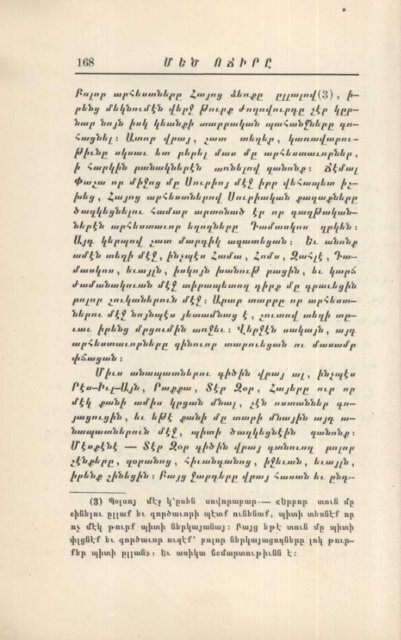 168 ՄԵԾ ՈՃԻՐԸ
Բոլոր արհեստները Հայոց ձեռքը ըլլալով(3), ի-
րենց մեկնումէն վերջ Թուրք ժողովուրդը չէր կըր-
նար նոյն իսկ կեանքի տարրական պահանջները գո-
հացնել: Ատոր վրայ, շատ տեղեր, կառավարու-
թիւնը սկսաւ ետ բերել մաս մը արհեստաւորներ,
ի հարկին բանակներէն առնելով զանոնք: Ճէմալ
Փաշա որ միջոց մը Սուրիոյ մէջ իբր վեհապետ իշ-
խեց, Հայոց արհեստներով Սուրիական քաղաքները
ծաղկեցնելու համար արտօնած էր որ գաղթական-
ներէն արհեստաւոր եղողները Դամասկոս դրկեն:
Այդ կերպով շատ մարդիկ ազատեցան: Եւ անոնք
ամէն տեղի մէջ, ինչպէս Համա, Հոմս, Զահլէ, Դա-
մասկոս, եւայլն, իսկոյն խանութ բացին, եւ կարճ
ժամանակուան մէջ տիրապետող դիրք մը գրաւեցին
բոլոր շուկաներուն մէջ: Արաբ տարրը որ արհեստ-
ներու մէջ նոյնպէս յետամնաց է, շուտով տեղի տը-
ւաւ իրենց մրցումին առջեւ: Վերջէն սակայն, այդ
արհեստաւորները զինուոր տարուեցան ու մասամբ
փճացան:
Միւս անապատներու գիծին վրայ ալ, ինչպէս
Րէս-Իւլ-Այն, Րաքքա, Տէր Զօր, Հայերը ուր որ
մէկ քանի ամիս կրցան մնալ, չէն ոստաններ գո-
յացուցին, եւ եթէ քանի մը տարի մնային այդ ա-
նապատներուն մէջ, պիտի ծաղկեցնէին զանոնք:
Մէսքէնէ — Տէր Զօր գիծին վրայ գտնուող բոլոր
չէնքերը, զօրանոց, հիւանդանոց, իջեւան, եւայլն,
իրենք շինեցին: Բայց ջարդերը վրայ հասան եւ ընդ-
(3) Պոլսոյ մէջ կ՚ըսեն սովորաբար.— «Երբոր տուն մը
շինելու ըլլաք եւ գործաւորի պէտք ունենաք, պիտի տեսնէք որ
ոչ մէկ թուրք պիտի ներկայանայ: Բայց եթէ տուն մը պիտի
փլցնէք եւ գործաւոր ուզէք՝ բոլոր ներկայացողները լոկ թուր-
քեր պիտի ըլլան»: Եւ ասիկա ճշմարտութիւնն է: